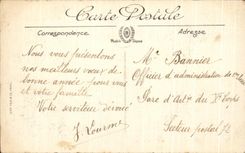 Carte Postale
Correspondance
Adresse
Nous vous présentons
nos meilleurs vœux de
bonne année pour vous
et votre famille
Votre serviteur dévoué
Mr Bannier
Officier d'administration de
Parc d'Art du Vº Corps
Secteur postal 72